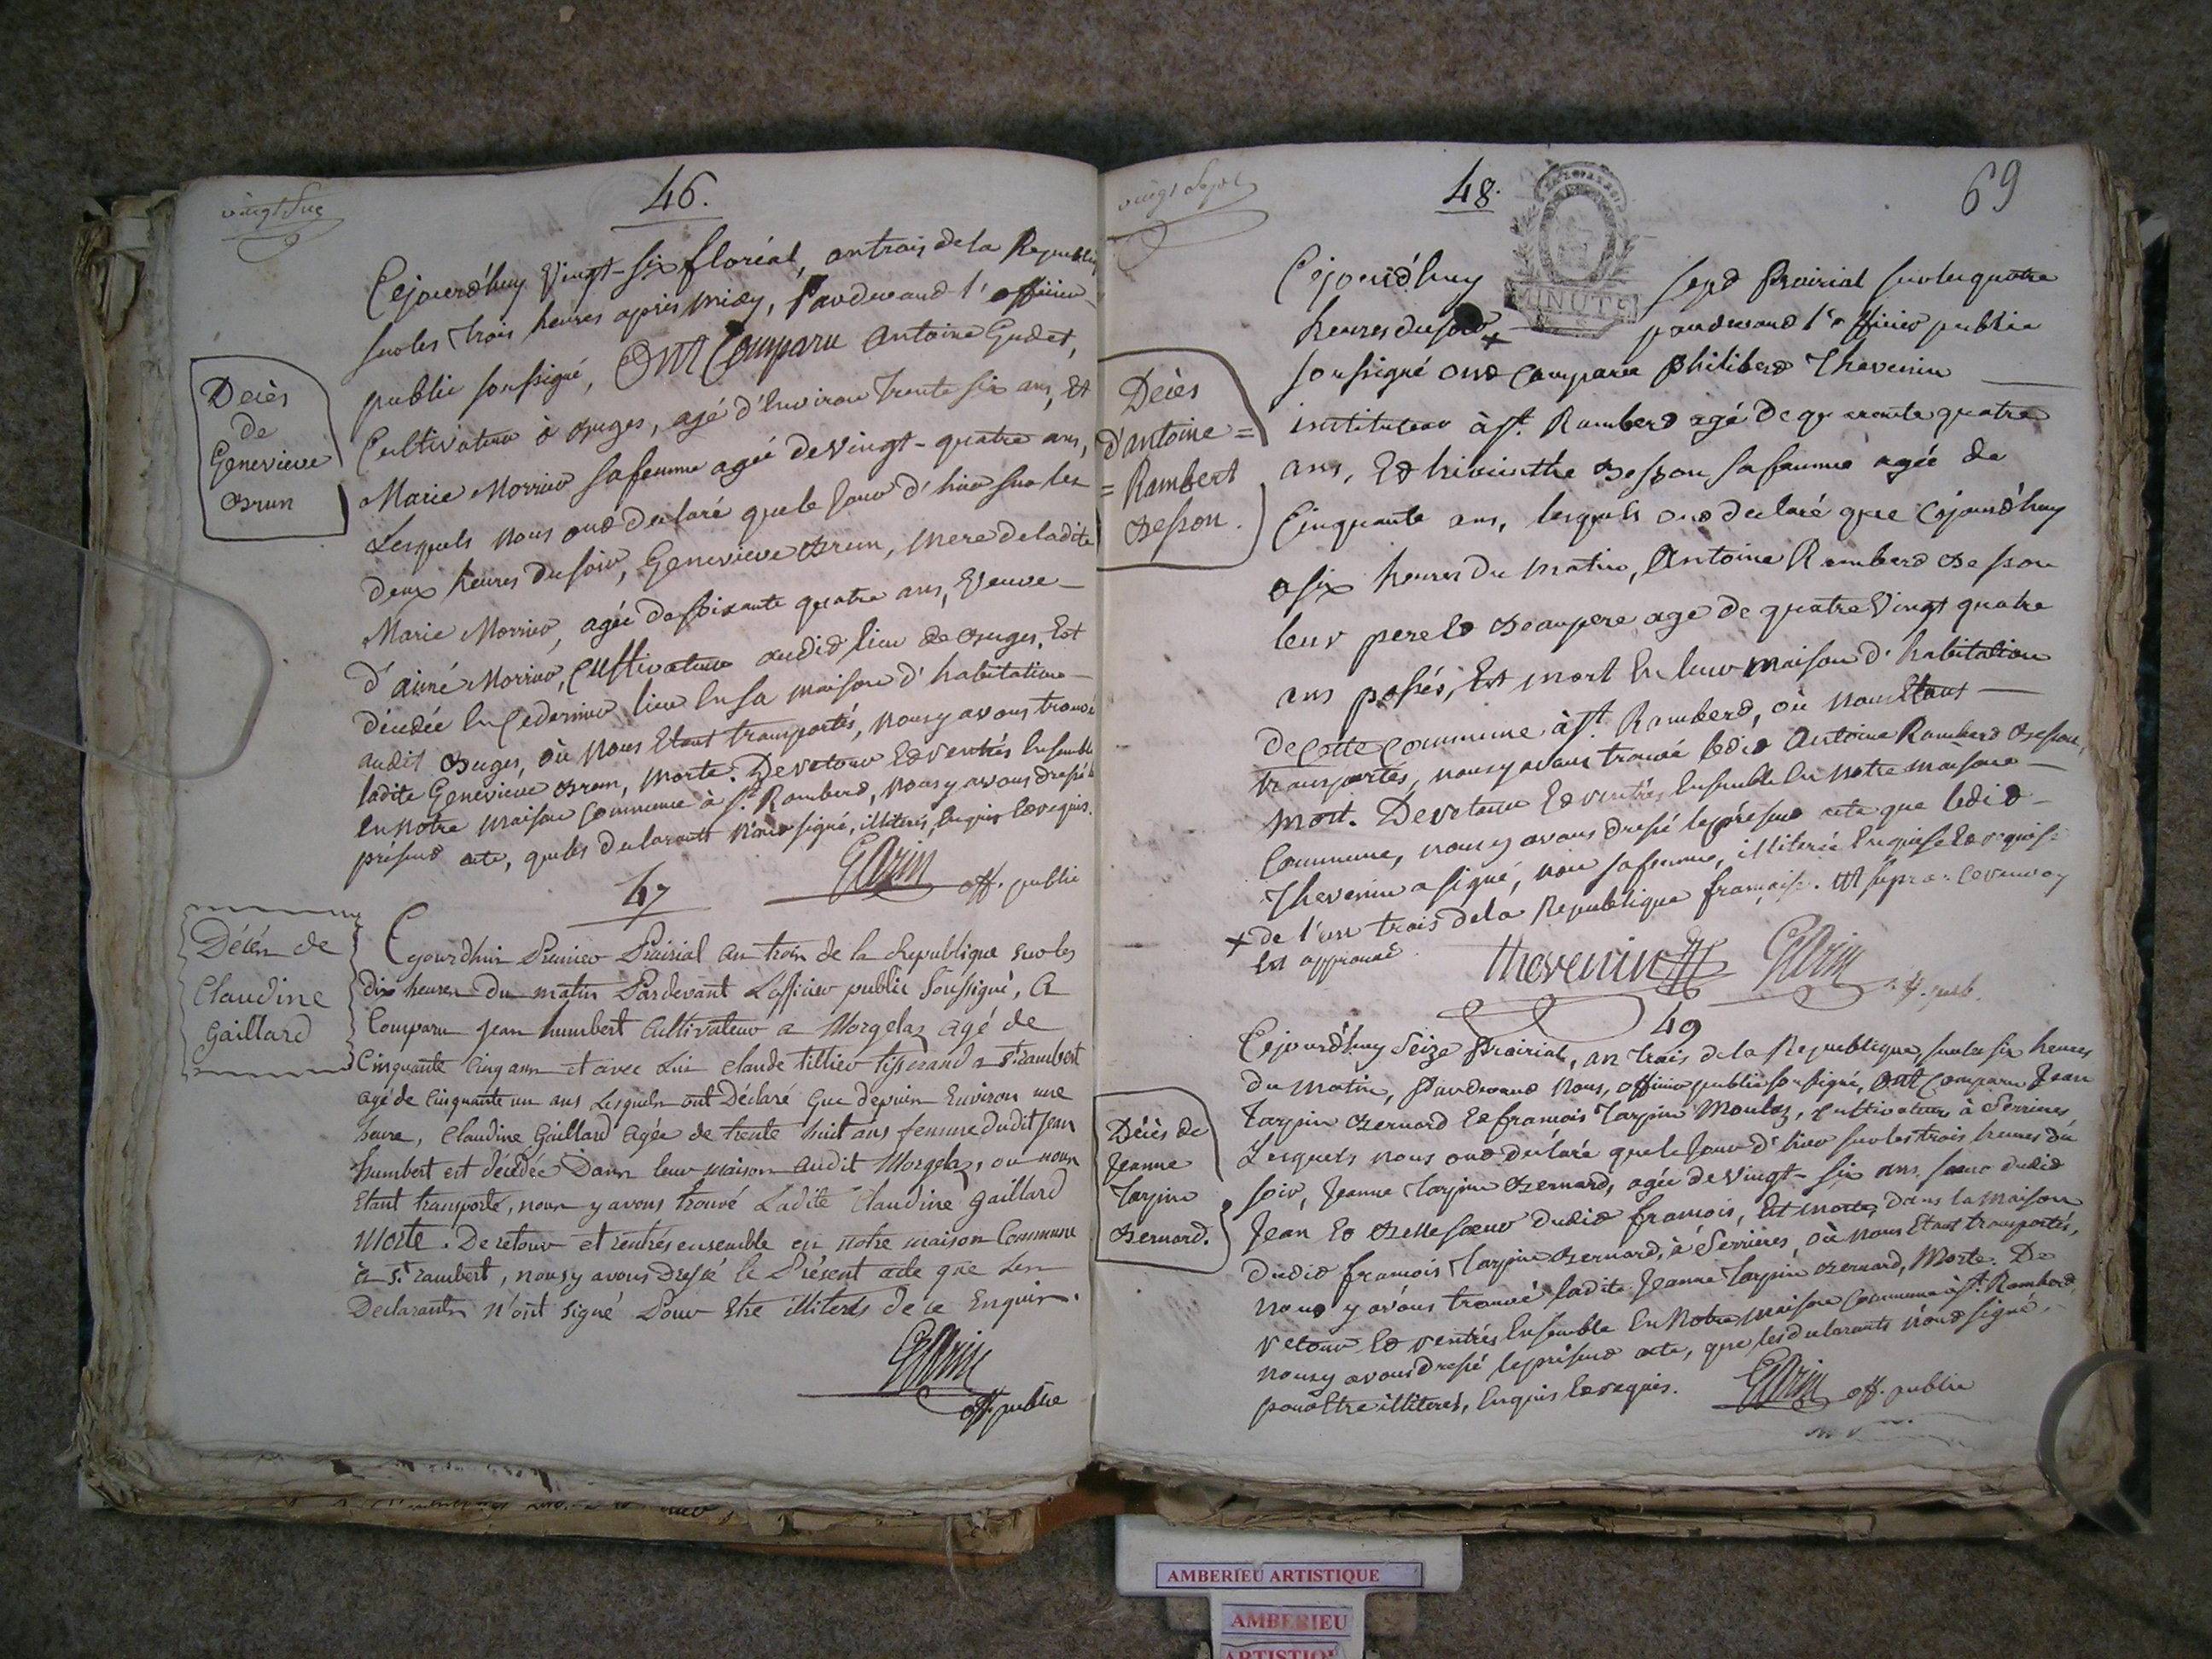 vingt Six
46.
Cejourd'huy Vingt-six floréal, an trois de la Republiq
sur les trois heures après midy, Pardevand l'officier
public soussigné, Ont Comparu Antoine Gudet,
Cultivateur à Buges, agé d'Environ trente six ans, Et
Marie Morrier sa femme agée de Vingt-quatre ans,
Lesquels nous ond declaré que le Jour d'hier sur les
deux heures du soir, Genevieve Brun, mere de ladite
Marie Morrier, agée de soixante quatre ans, Veuve
d'aimé Morrier, Cultivateur audid lieu de Buges, Est
décédée En Ce dernier lieu En sa maison d'habitation
audit Buges, où Nous Etant transportés, nous y avons trouvé
ladite Genevieve Brun, morte. De retour Ed rentrés Ensemble
En notre maison Commune à St. Ramberd, nous y avons dressé le
présend acte, que les declarants n'ond signé, illiterés, Enquis Ed requis.
Decès
de
Genevieve
Brun
GARin off. public
47
Cejourdhui Premier Prairial an trois de la Republique sur les
dix heures du matin Pardevant Lofficier public Soussigné, A
Comparu Jean humbert Cultivateur a Morgelaz agé de
Cinquante Cinq ans et avec Lui Claude tillier tisserand a St. rambert
agé de Cinquante un ans Lesquels ont Déclaré que depuis Environ une
heure, Claudine Gaillard agée de trente huit ans femme dudit Jean
humbert est décédée Dans leur maison audit Morgelaz, ou nous
Etant transporté, nous y avons trouvé Ladite Claudine gaillard
Morte. De retour et rentrés ensemble en notre maison Commune
à St. rambert, nous y avons Dressé le Présent acte que Les
Declarants n'ont signé Pour Etre illiterés de ce Enquis.
Décés de
Claudine
Gaillard
GARin
off. public
vingt Sept
48.
69
MINUTE
Cejourd'huy sept Prairial sur les quatre
heures du soir + pardevand l'officier public
soussigné ond Comparu Philiberd Thevenin
instituteur à St. Ramberd agé de quarante quatre
ans, Ed hiacinthe Besson sa femme agée de
Cinquante ans, lesquels ond declaré que Cejourd'huy
a six heures du matin, Antoine Ramberd Besson
leur pere Ed Beaupere agé de quatre Vingt quatre
ans passés, Est mort En leur maison d'habitation
de Cette Commune à St. Ramberd, où nous Etant
transportés, nous y avons trouvé ledid Antoine Ramberd Besson,
mort. De retour Ed rentrés Ensemble En notre maison
Commune, nous y avons dressé le présend acte que ledid
Thevenin a signé, non sa femme, illiterée Enquise Ed requise
+ de l'an trois de la Republique française. Ut supra: Ce renvoy
Est approuvé
Decès
d'antoine =
= Rambert
Besson.
thevenin GARin off. pub.
49
Cejourd'huy Seize Prairial, an trois de la Republique, sur les six heures
du matin, Pardevand Nous, officier public soussigné, Ont Comparu Jean
Tarpin Bernard Ed francois Tarpin Moulaz, Cultivateurs à Serrieres
Lesquels nous ond declaré que le Jour d'hier sur les trois heures du
soir, Jeanne Tarpin Bernard, agée de Vingt-six ans sœur dudid
Jean Ed Belle sœur dudid francois, Est morte, dans la maison
dudid francois Tarpin Bernard, à Serrieres, où nous Etant transportés,
nous y avons trouvé ladite Jeanne Tarpin Bernard, Morte. De
retour Ed rentrés Ensemble En Notre maison Commune à St. Ramberd,
nous y avons dressé le présend acte, que les declarants n'ond signé,
pour Etre illiterés, Enquis Ed requis.
Décès de
Jeanne
Tarpin
Bernard.
GARin off. public
AMBERIEU ARTISTIQUE
AMBERIEU
ARTISTIQUE